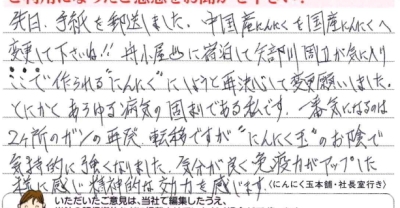 先日、手紙を郵送しました。中国産にんにくを国産にんにくへ
変更して下さいね!! 舟小屋に宿泊して矢部川周辺が気に入り
ここで作られる"にんにく"にしようと再決心して変更願いました。
とにかくあらゆる病気の固まりである私です。一番気になるのは
2ヶ所のガンの再発、転移ですが"にんにく玉"のお陰で
気持的に強くなりました。気分が良く免疫力がアップした
様に感じ精神的な効力を感じます。(にんにく玉本舗・社長室行き)
いただいたご意見は、当社で編集したうえ、